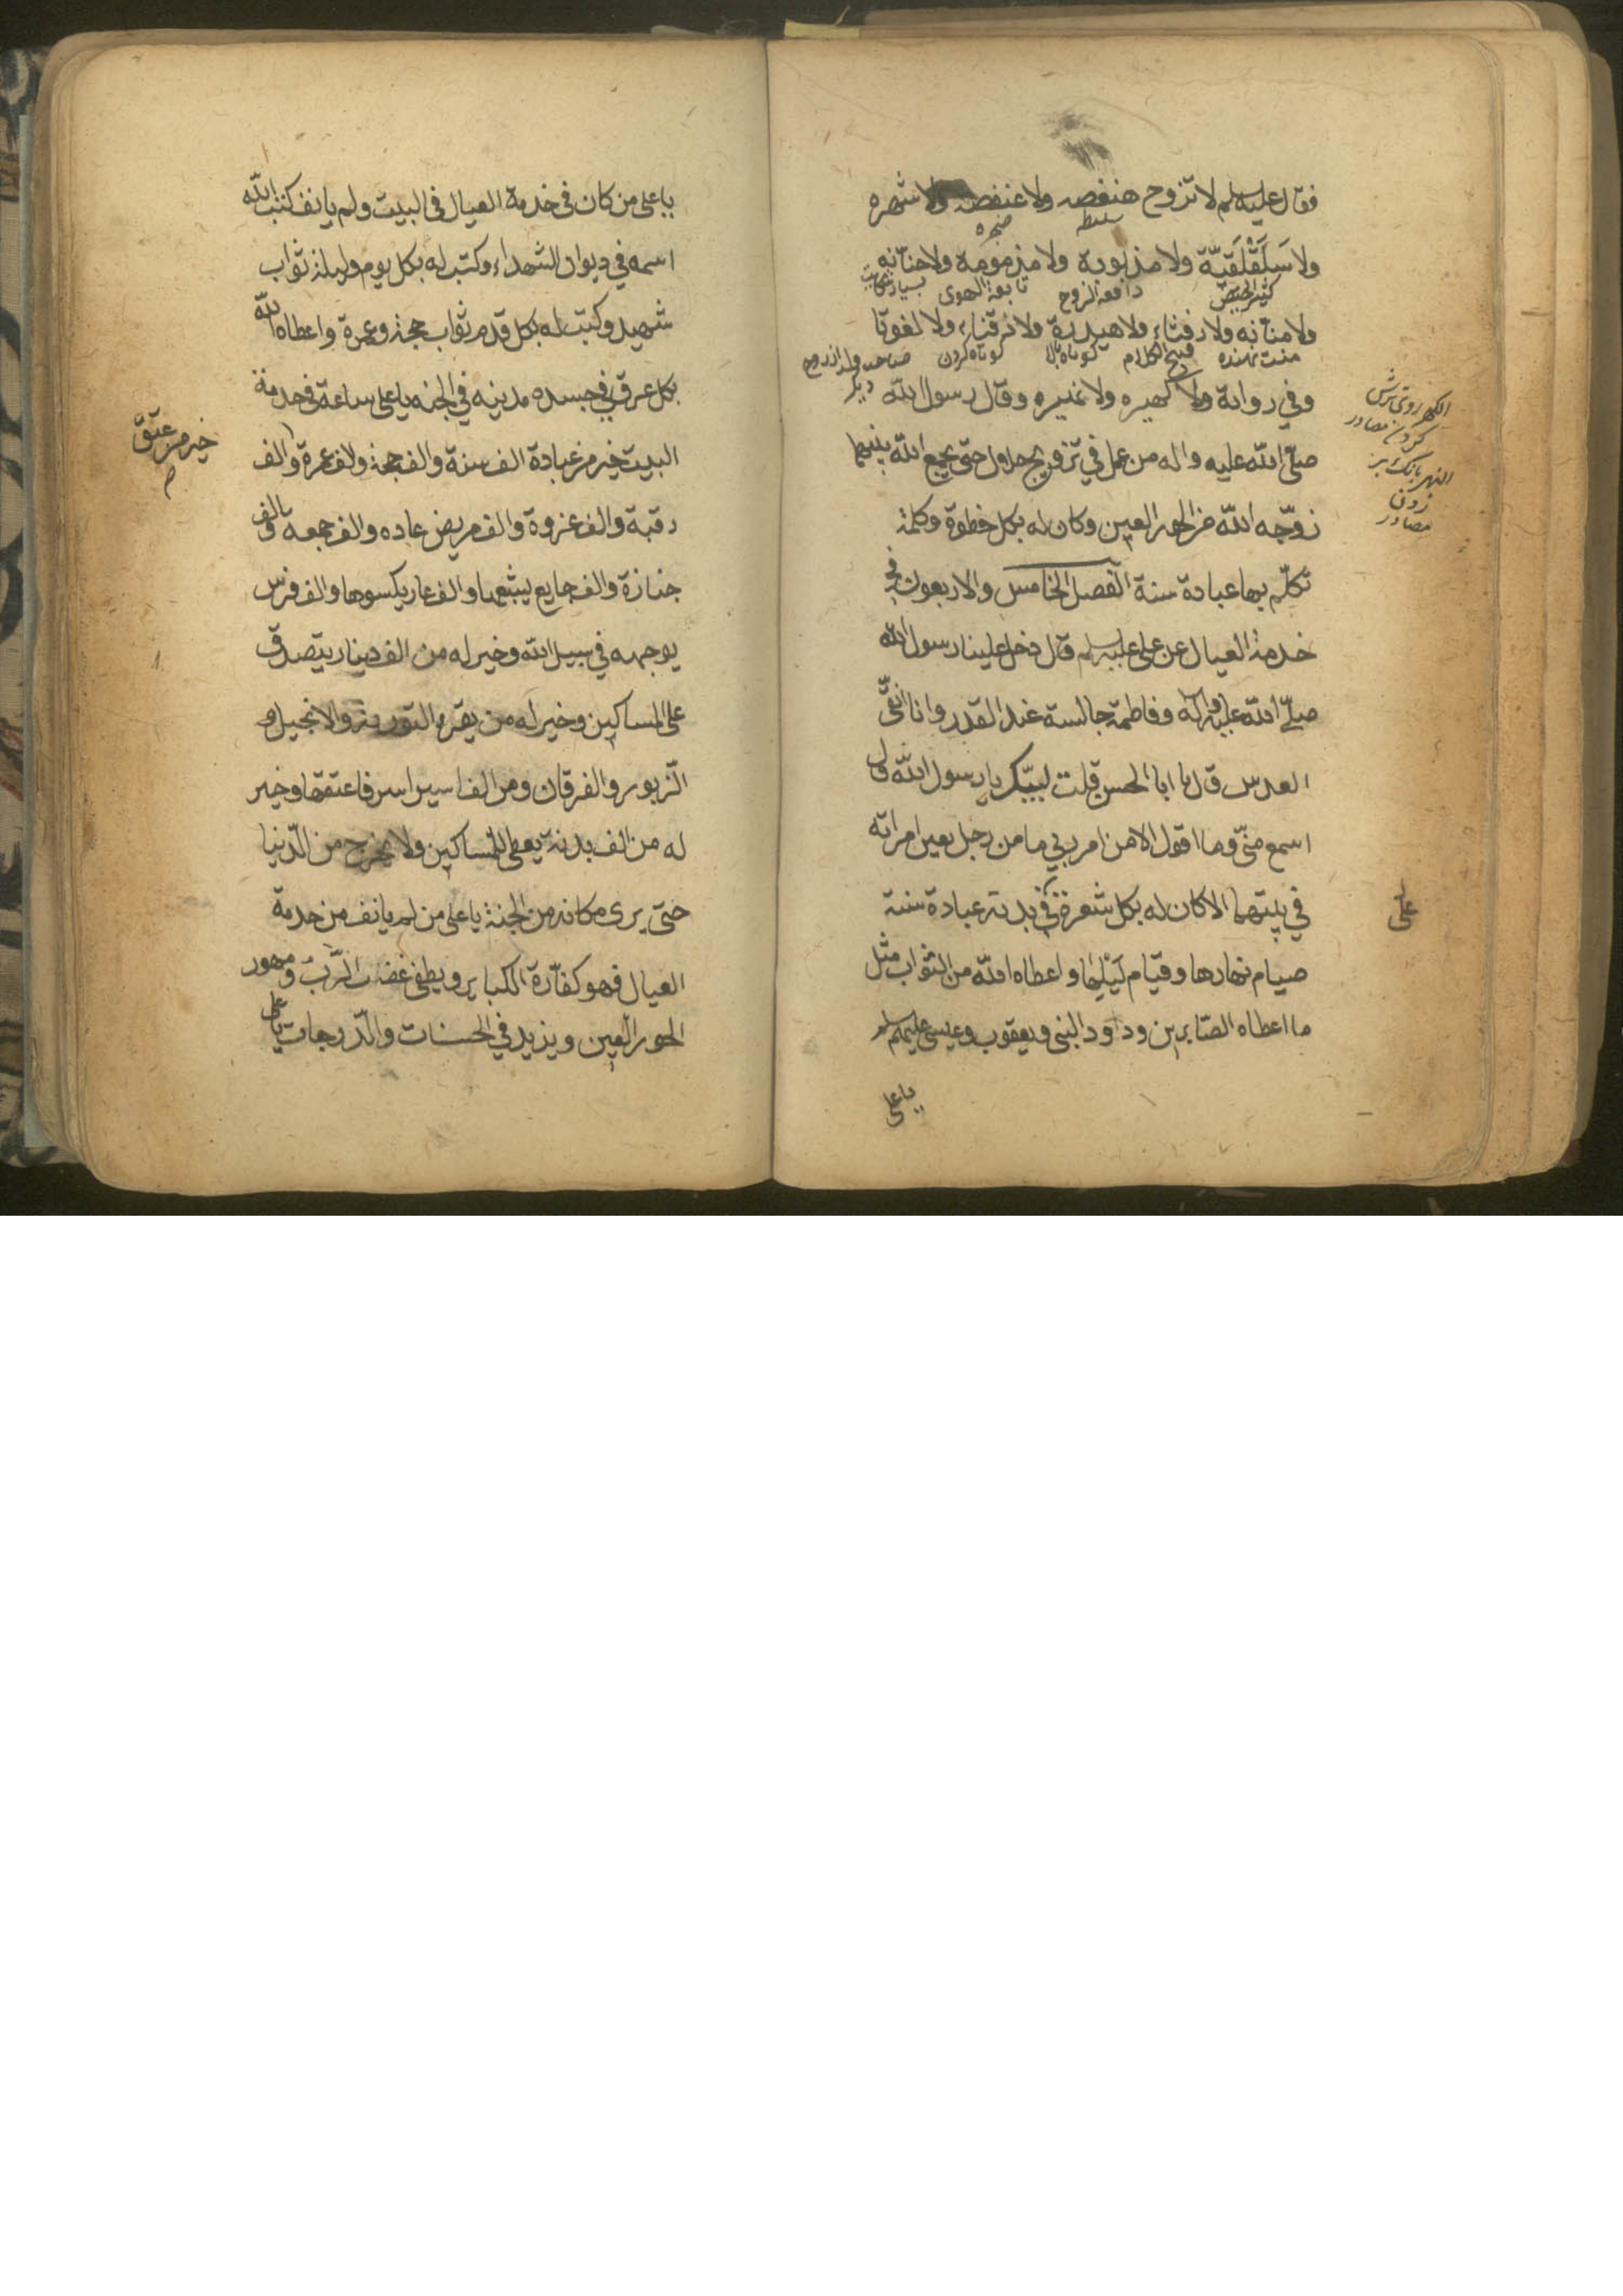 فقال عليه سلم لا تزوج هنفصه ولا عنفصه ولا شهره
سليطه
ولا سَلَقْلَقيّة ولا مذبوبة ولا مذمومة ولا حنّانه
كثير الحيض دافعة الزوج تابعة الهوى
ولا منّانه ولا رفثاء ولا هيدرة ولا ذقناء ولا لفوتا
منت نهنده قبيح الكلام كوتاه بالا كوتاه كردن صاحب ولد از زوج ديگر
وفي رواية ولا كهيره ولا نهيره وقال رسول الله
صلّى الله عليه واله من عمل في تزويج حلال حتى يجمع الله بينهما
زوّجه الله من الحور العين وكان له بكل خطوة وكلمة
تكلّم بها عبادة سنة الفصل الخامس والاربعون في
خدمة العيال عن علي عليه سلم قال دخل علينا رسول الله
صلّى الله عليه واله وفاطمة جالسة عند القدر وانا انقّى
العدس قال يا ابا الحسن قلت لبيّك يا رسول الله قال
اسمع منّى وما اقول الا من امر ربي ما من رجل يعين امراته
في بيتهما الا كان له بكل شعرة في بدنه عبادة سنة
صيام نهارها وقيام لَيْلِها واعطاه الله من الثواب مثل
ما اعطاه الصّابرين وداود النبى ويعقوب وعيسى عليهم سلم
يا على
الكهر روى ترش
كردن مصادر
النهر بانك بر
زدن
مصادر
على
يا على من كان في خدمة العيال في البيت ولم يانف كتب الله
اسمه في ديوان الشهداء وكتب له بكل يوم وليلة ثواب
شهيد وكتب له بكل قدم ثواب حجة وعمرة واعطاه الله
بكل عرق في جسده مدينه في الجنه يا على ساعة في خدمة
البيت خير من عبادة الف سنة والف حجة والف عمرة والف
رقبة والف غزوة والف مريض عاده والف جمعه والف
جنازة والف جايع يشبعها والف عار يكسوها والف فرس
يوجهه في سبيل الله وخير له من الف دينار يتصدق
على المساكين وخير له من يقرء التورية والانجيل و
الزبور والفرقان ومن الف اسير اسر فاعتقها وخير
له من الف بدنة يعطى للمساكين ولا يخرج من الدّنيا
حتى يرى مكانه من الجنة يا على من لم يانف من خدمة
العيال فهو كفّارة الكباير ويطفى غضب الرّبّ ومهور
الحور العين ويزيد في الحسنات والدّرجات يا على
خير من عتق